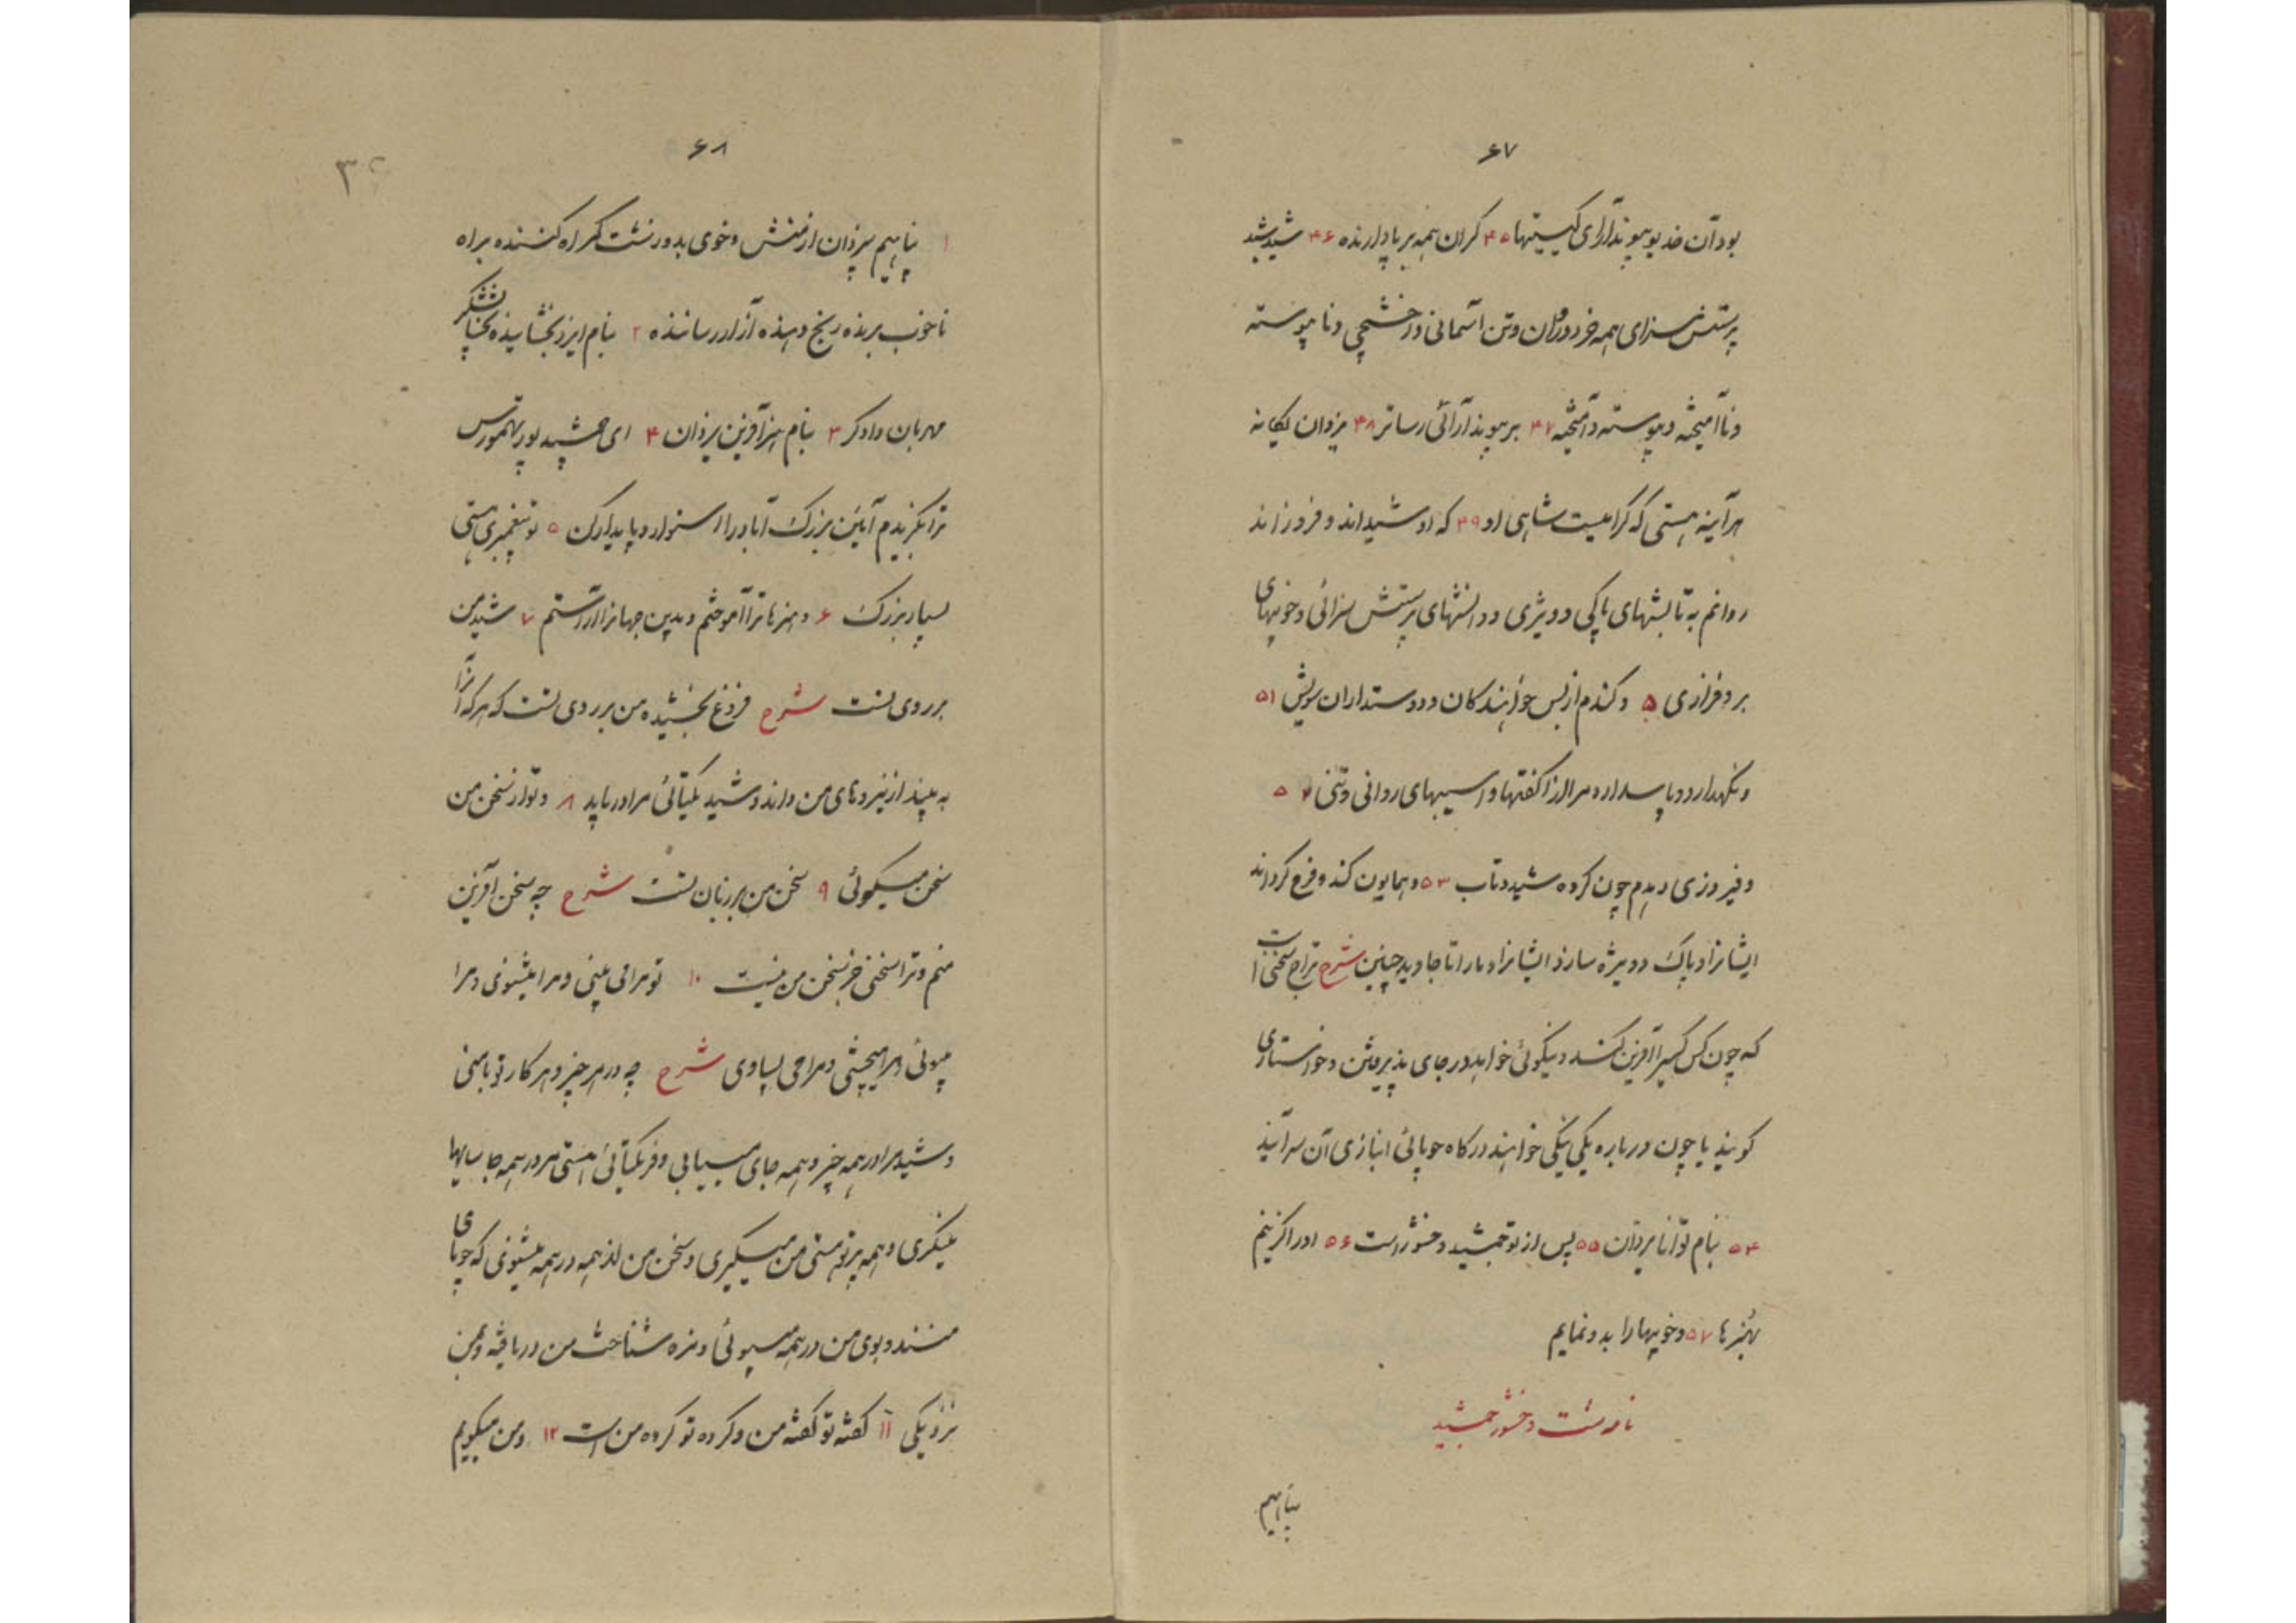 ۶۷
بود آن خدیو پیوند آرای کیتیها ۴۵ کران همه بر پا دارنده ۴۶ شید شید
پرستش سزای همه خرد و روان و تن آسمانی و اخشیجی و ناپیوسته
و ناآمیخته و پیوسته و آمیخته ۴۷ بر پیوند آرائی رساتر ۴۸ یزدان یکانه
هر آینه هستی که کرامیست شاهی او ۴۹ که او شید اند و فروزاند
روانم به تابشهای پاکی و ویژی و دانشهای پرستش سزائی و خوبیهای
بر و فرازی ۵۰ و کندم از بس خواهندکان و دوستداران سویش ۵۱
و نکهدارد و پاس دارد مرا از آکفتها و آسیبهای روانی و تنی ۵۲
و فیروزی دهدم چون کروه شید و تاب ۵۳ و همایون کند و فرخ کرداند
ایشانرا و پاک و ویژه سازد ایشانرا و مارا تا جاوید چنین شرح
که چون کس کسیرا آفرین کند و نیکوئی خواهد در جای پذیرفتن و خواستاری
کویند یا چون درباره یکی نیکی خواهند درکاه جویائی انبازی آن سرایند
۵۴ بنام توانا یزدان ۵۵ پس از تو جمشید وخشور است ۵۶ او را کزینم
هنرها ۵۷ و خوبیها را بدو نمایم
نامه شت وخشور جمشید
پناهیم
۶۸
۱ پناهیم به یزدان از منش و خوی بد و زشت کمراه کننده براه
ناخوب برنده رنج دهنده آزار رساننده ۲ بنام ایزد بخشاینده بخشایشکر
مهربان دادکر ۳ بنام هنر آفرین یزدان ۴ ای جمشید پور تهمورس
ترا بکزیدم آئین بزرک آباد را استوار و پایدار کن ۵ تو پیغمبری هستی
بسیار بزرک ۶ و هنرها ترا آموختم و بدین جهانرا آراستم ۷ شید من
بر روی تست شرح فروغ بخشیده من بر روی تست که هر که آنرا
به بیند از نیروهای من داند و شید یکتائی مرا دریابد ۸ و تو از سخن من
سخن میکوئی ۹ سخن من بر زبان تست شرح چه سخن آفرین
منم و ترا سخنی جز سخن من نیست ۱۰ تو مرا می بینی و مرا میشنوی و مرا
میبوئی و مرا میچشی و مرا می بساوی شرح چه در هر چیز و هر کار تو با منی
و شید مرا در همه چیز و همه جای مییابی و فر یکتائی هستی مرا در همه جا سایها
مینکری و همه پرتو هستی من میکیری و سخن من از همه در همه میشنوی که جویای
منند و بوی من در همه میبوئی و مزه شناخت من دریافته و بمن
نزدیکی ۱۱ کفته تو کفته من و کرده تو کرده من است ۱۲ و من میکویم